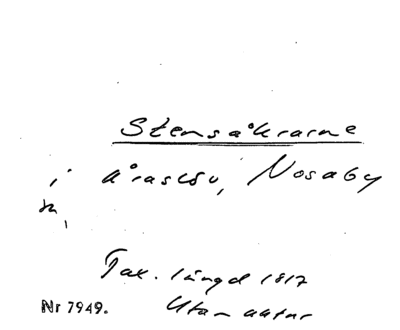 Stensåkrarne
i Åraslöv, Nosaby
Tax. längd 1817
Nr 7949. Utan